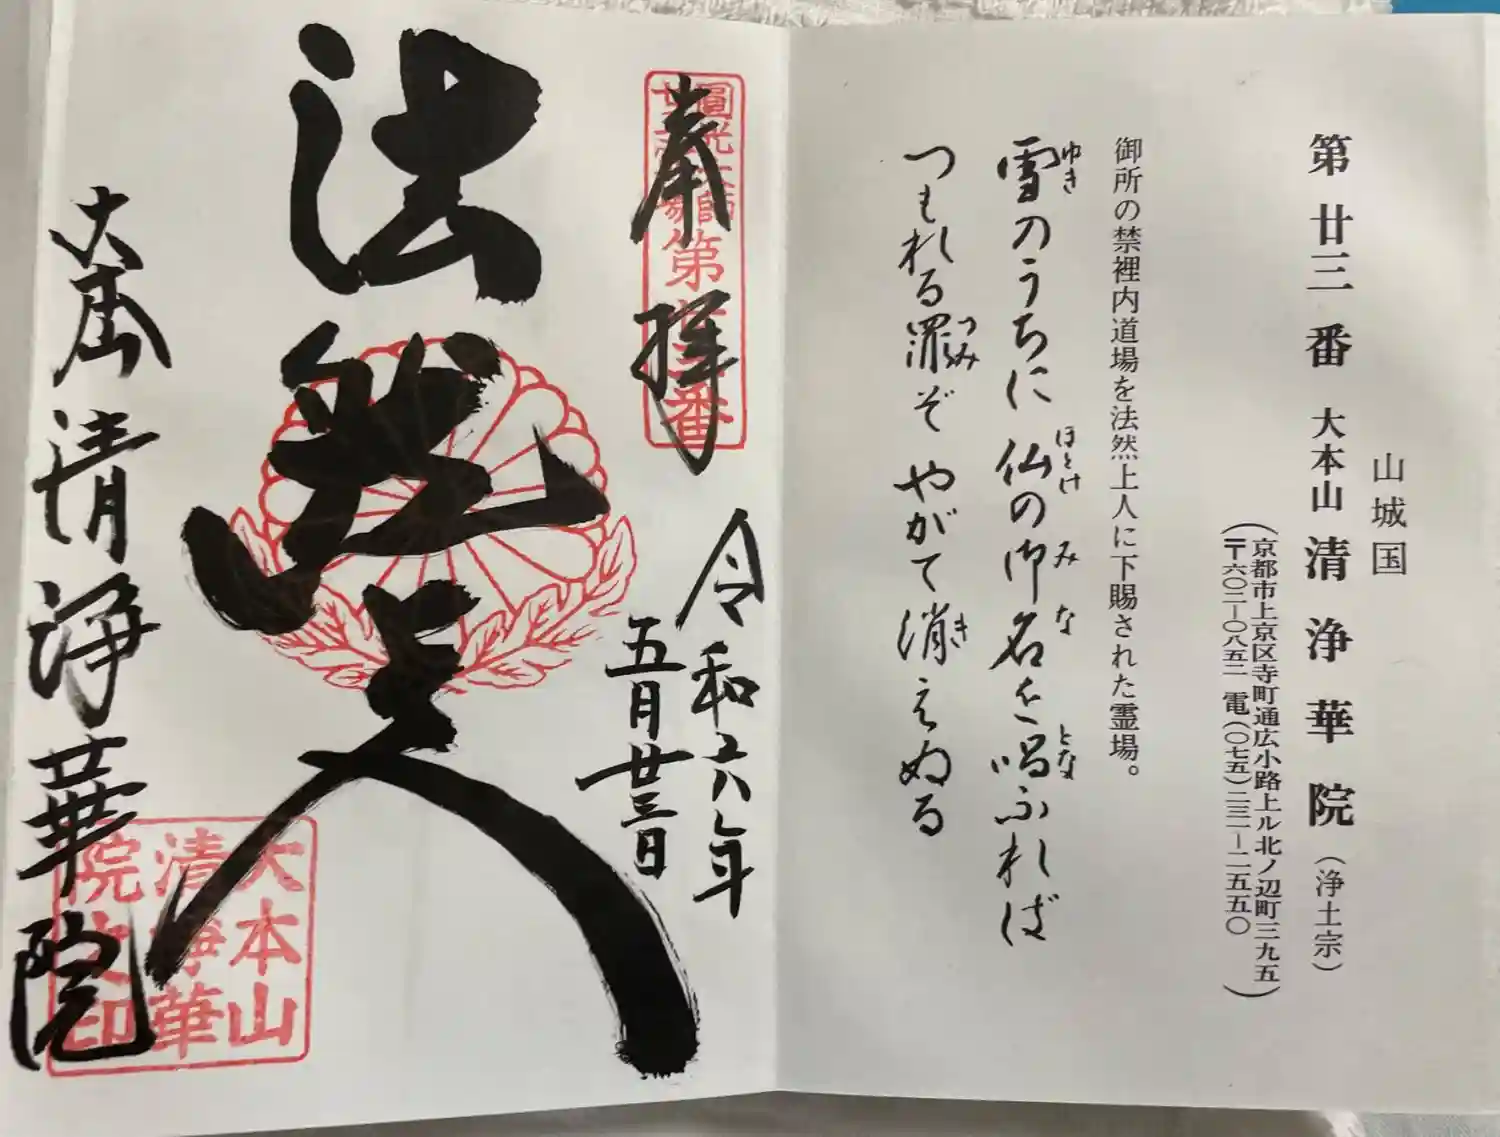 山城国
第廿三番 大本山 清浄華院（浄土宗）
（京都市上京区寺町通広小路上ル北ノ辺町三九五
〒六〇二－〇八五二 電（〇七五）二三一－二五五〇）
御所の禁裡内道場を法然上人に下賜された霊場。
雪のうちに 仏の御名を唱ふれば
ゆき ほとけ みな とな
つもれる罪ぞ やがて消えぬる
つみ き
奉拝
圓光大師
廿五霊場
第廿三番
令和六年
五月廿三日
法然上人
大本山 清浄華院
大本山
清浄華
院之印